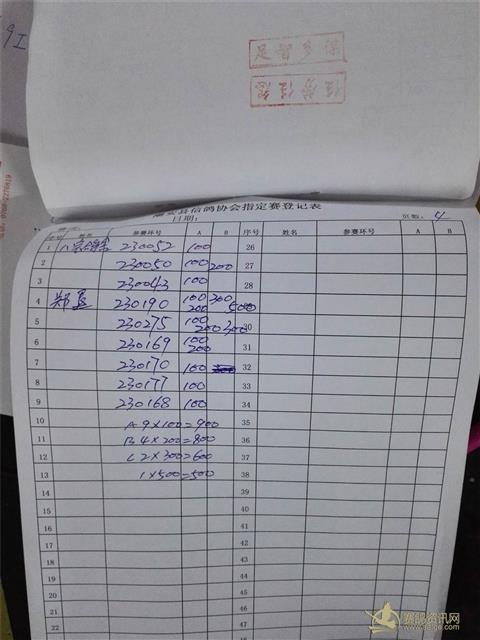 保乡智足
任劳任怨
县信鸽协会指定赛登记表
日期： 页数：4
序号 姓名 参赛环号 A B 序号 姓名 参赛环号 A B
1 230052 100 26
2 230050 100 200 27
3 230043 100 28
4 郑 230190 100 300 200 500
5 230275 100 200 300 30
6 230169 100 200 31
7 230170 100 32
8 230177 100 33
9 230168 100 34
10 A 9×100=900 35
11 B 4×200=800 36
12 C 2×300=600 37
13 1×500=500 38
14 39
15 40
16 41
17 42
18 43
19 44
20 45
21 46
22 47
赛鸽资讯网